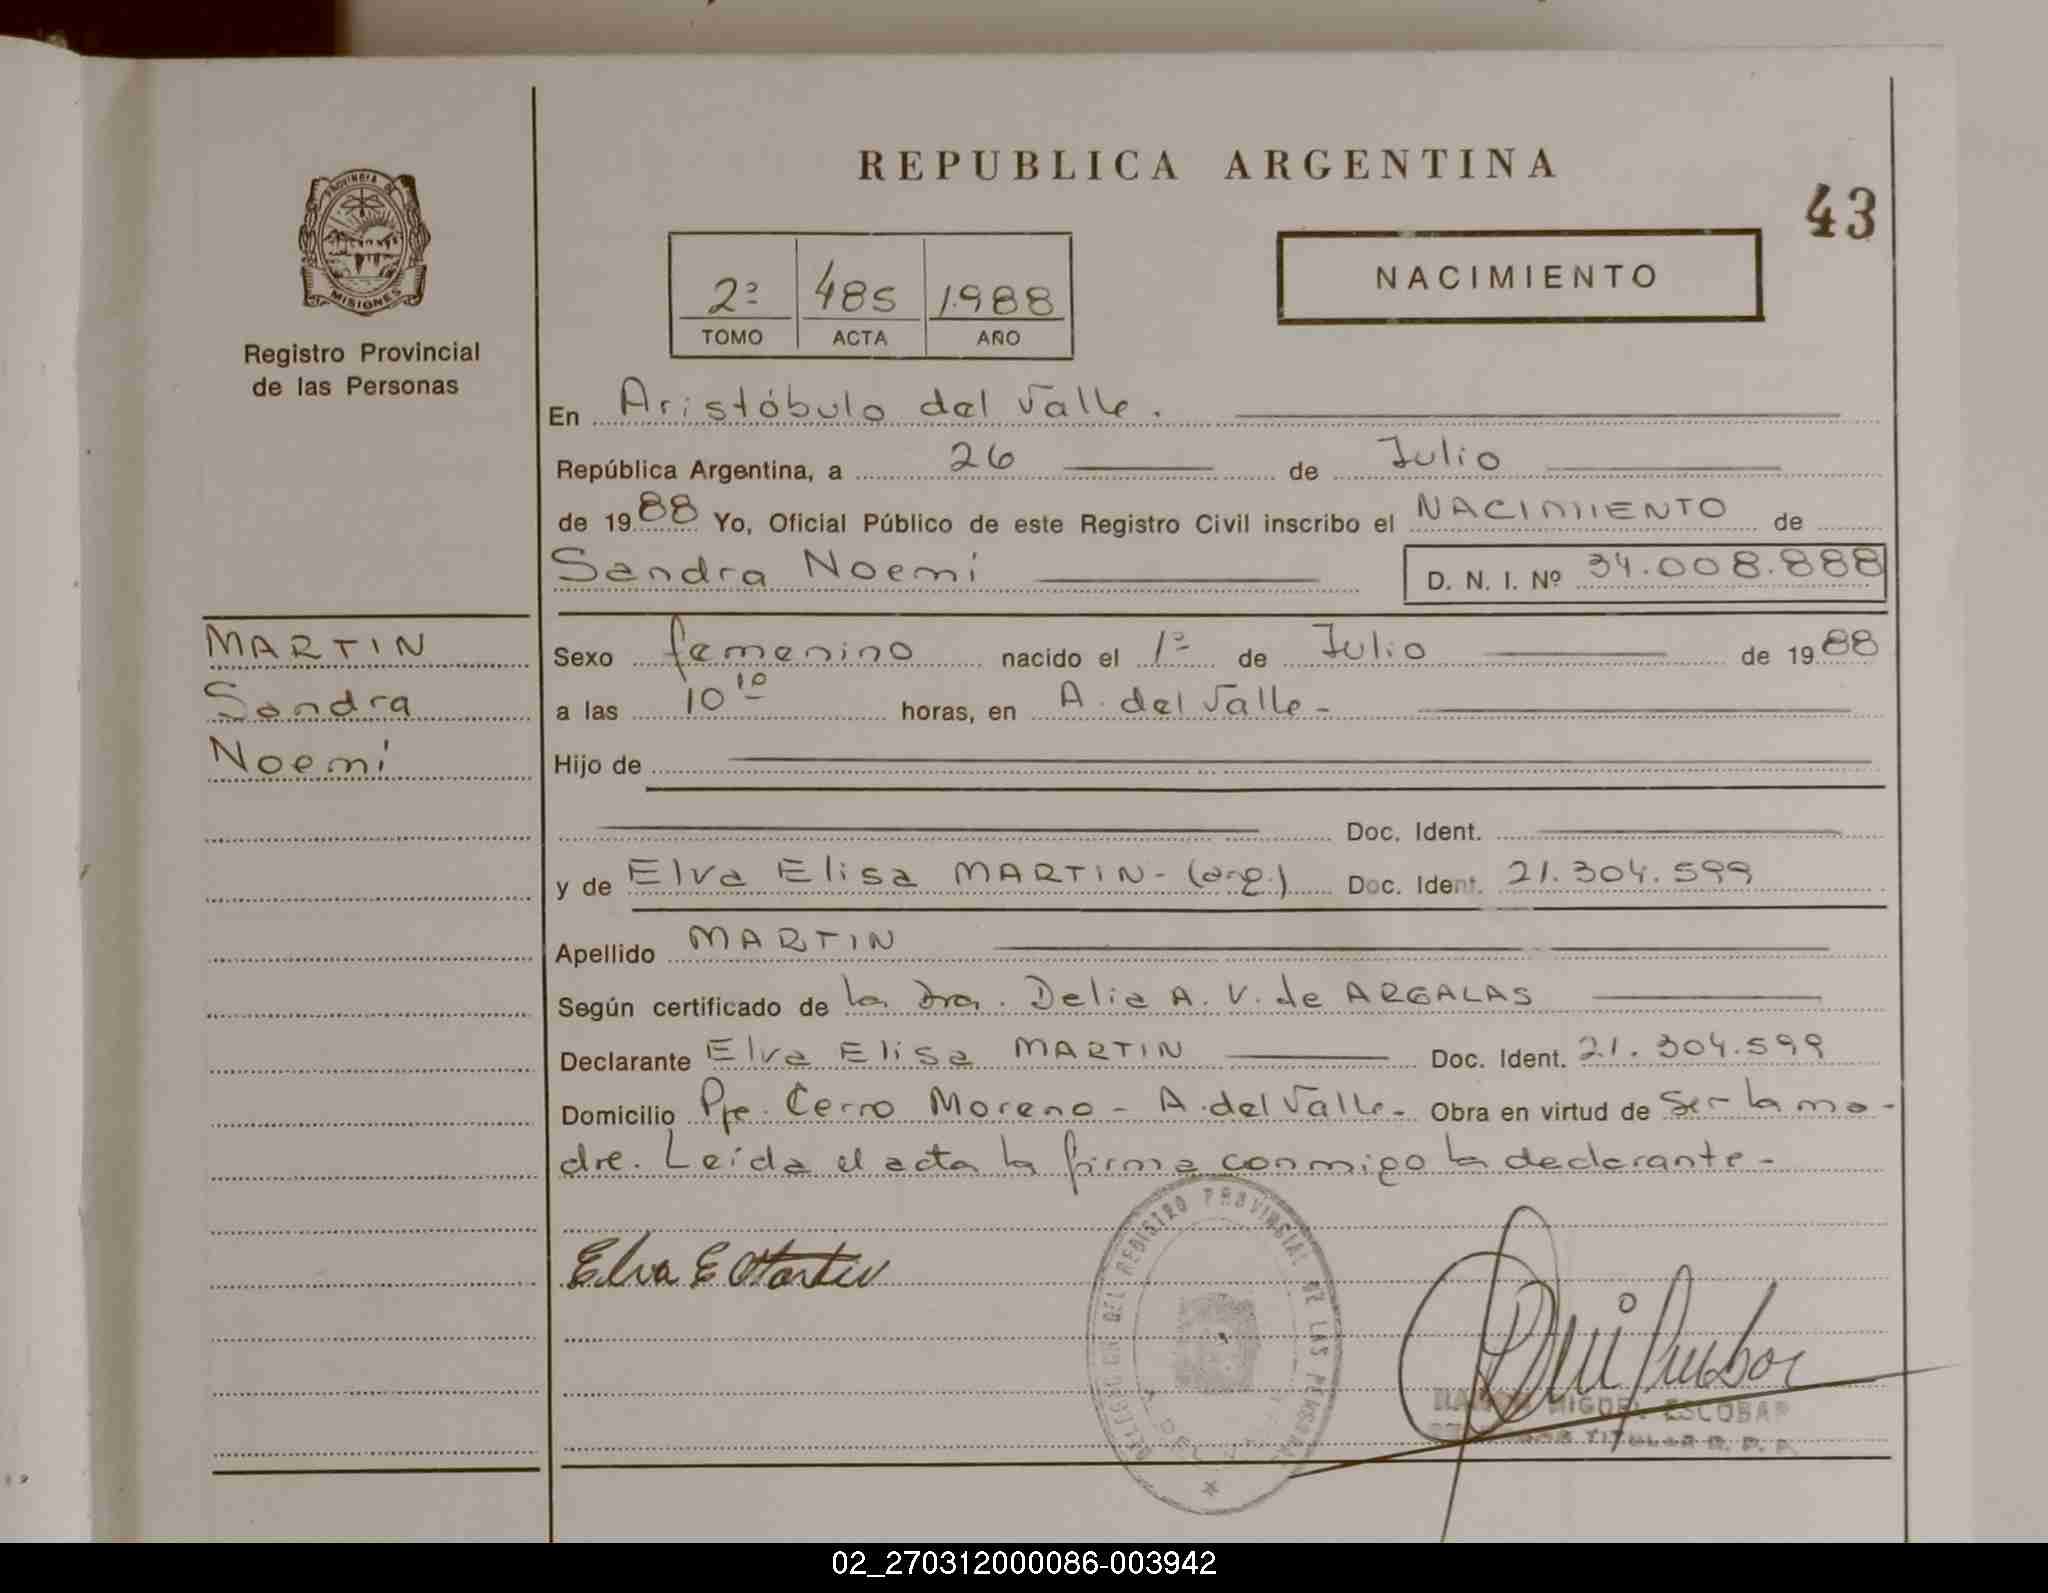 REPUBLICA ARGENTINA
43
PROVINCIA DE
MISIONES
Registro Provincial
de las Personas
2º 485 1.988
TOMO ACTA AÑO
NACIMIENTO
En Aristóbulo del Valle.
República Argentina, a 26 de Julio
de 1988 Yo, Oficial Público de este Registro Civil inscribo el NACIMIENTO de
Sandra Noemí D. N. I. Nº 34.008.888
MARTIN
Sandra
Noemí
Sexo femenino nacido el 1º de Julio de 1988
a las 10 10 horas, en A. del Valle-
Hijo de
Doc. Ident.
y de Elva Elisa MARTIN- (arg.) Doc. Ident. 21.304.599
Apellido MARTIN
Según certificado de la Dra. Delia A. V. de ARGALAS
Declarante Elva Elisa MARTIN Doc. Ident. 21.304.599
Domicilio Pje. Cerro Moreno - A. del Valle- Obra en virtud de Ser la ma-
dre. Leída el acta la firma conmigo la declarante-
Elva E Martin
DELEGACION DEL REGISTRO PROVINCIAL DE LAS PERSONAS
MIGUEL ESCOBAR
TITULAR R. P. P.
02_270312000086-003942